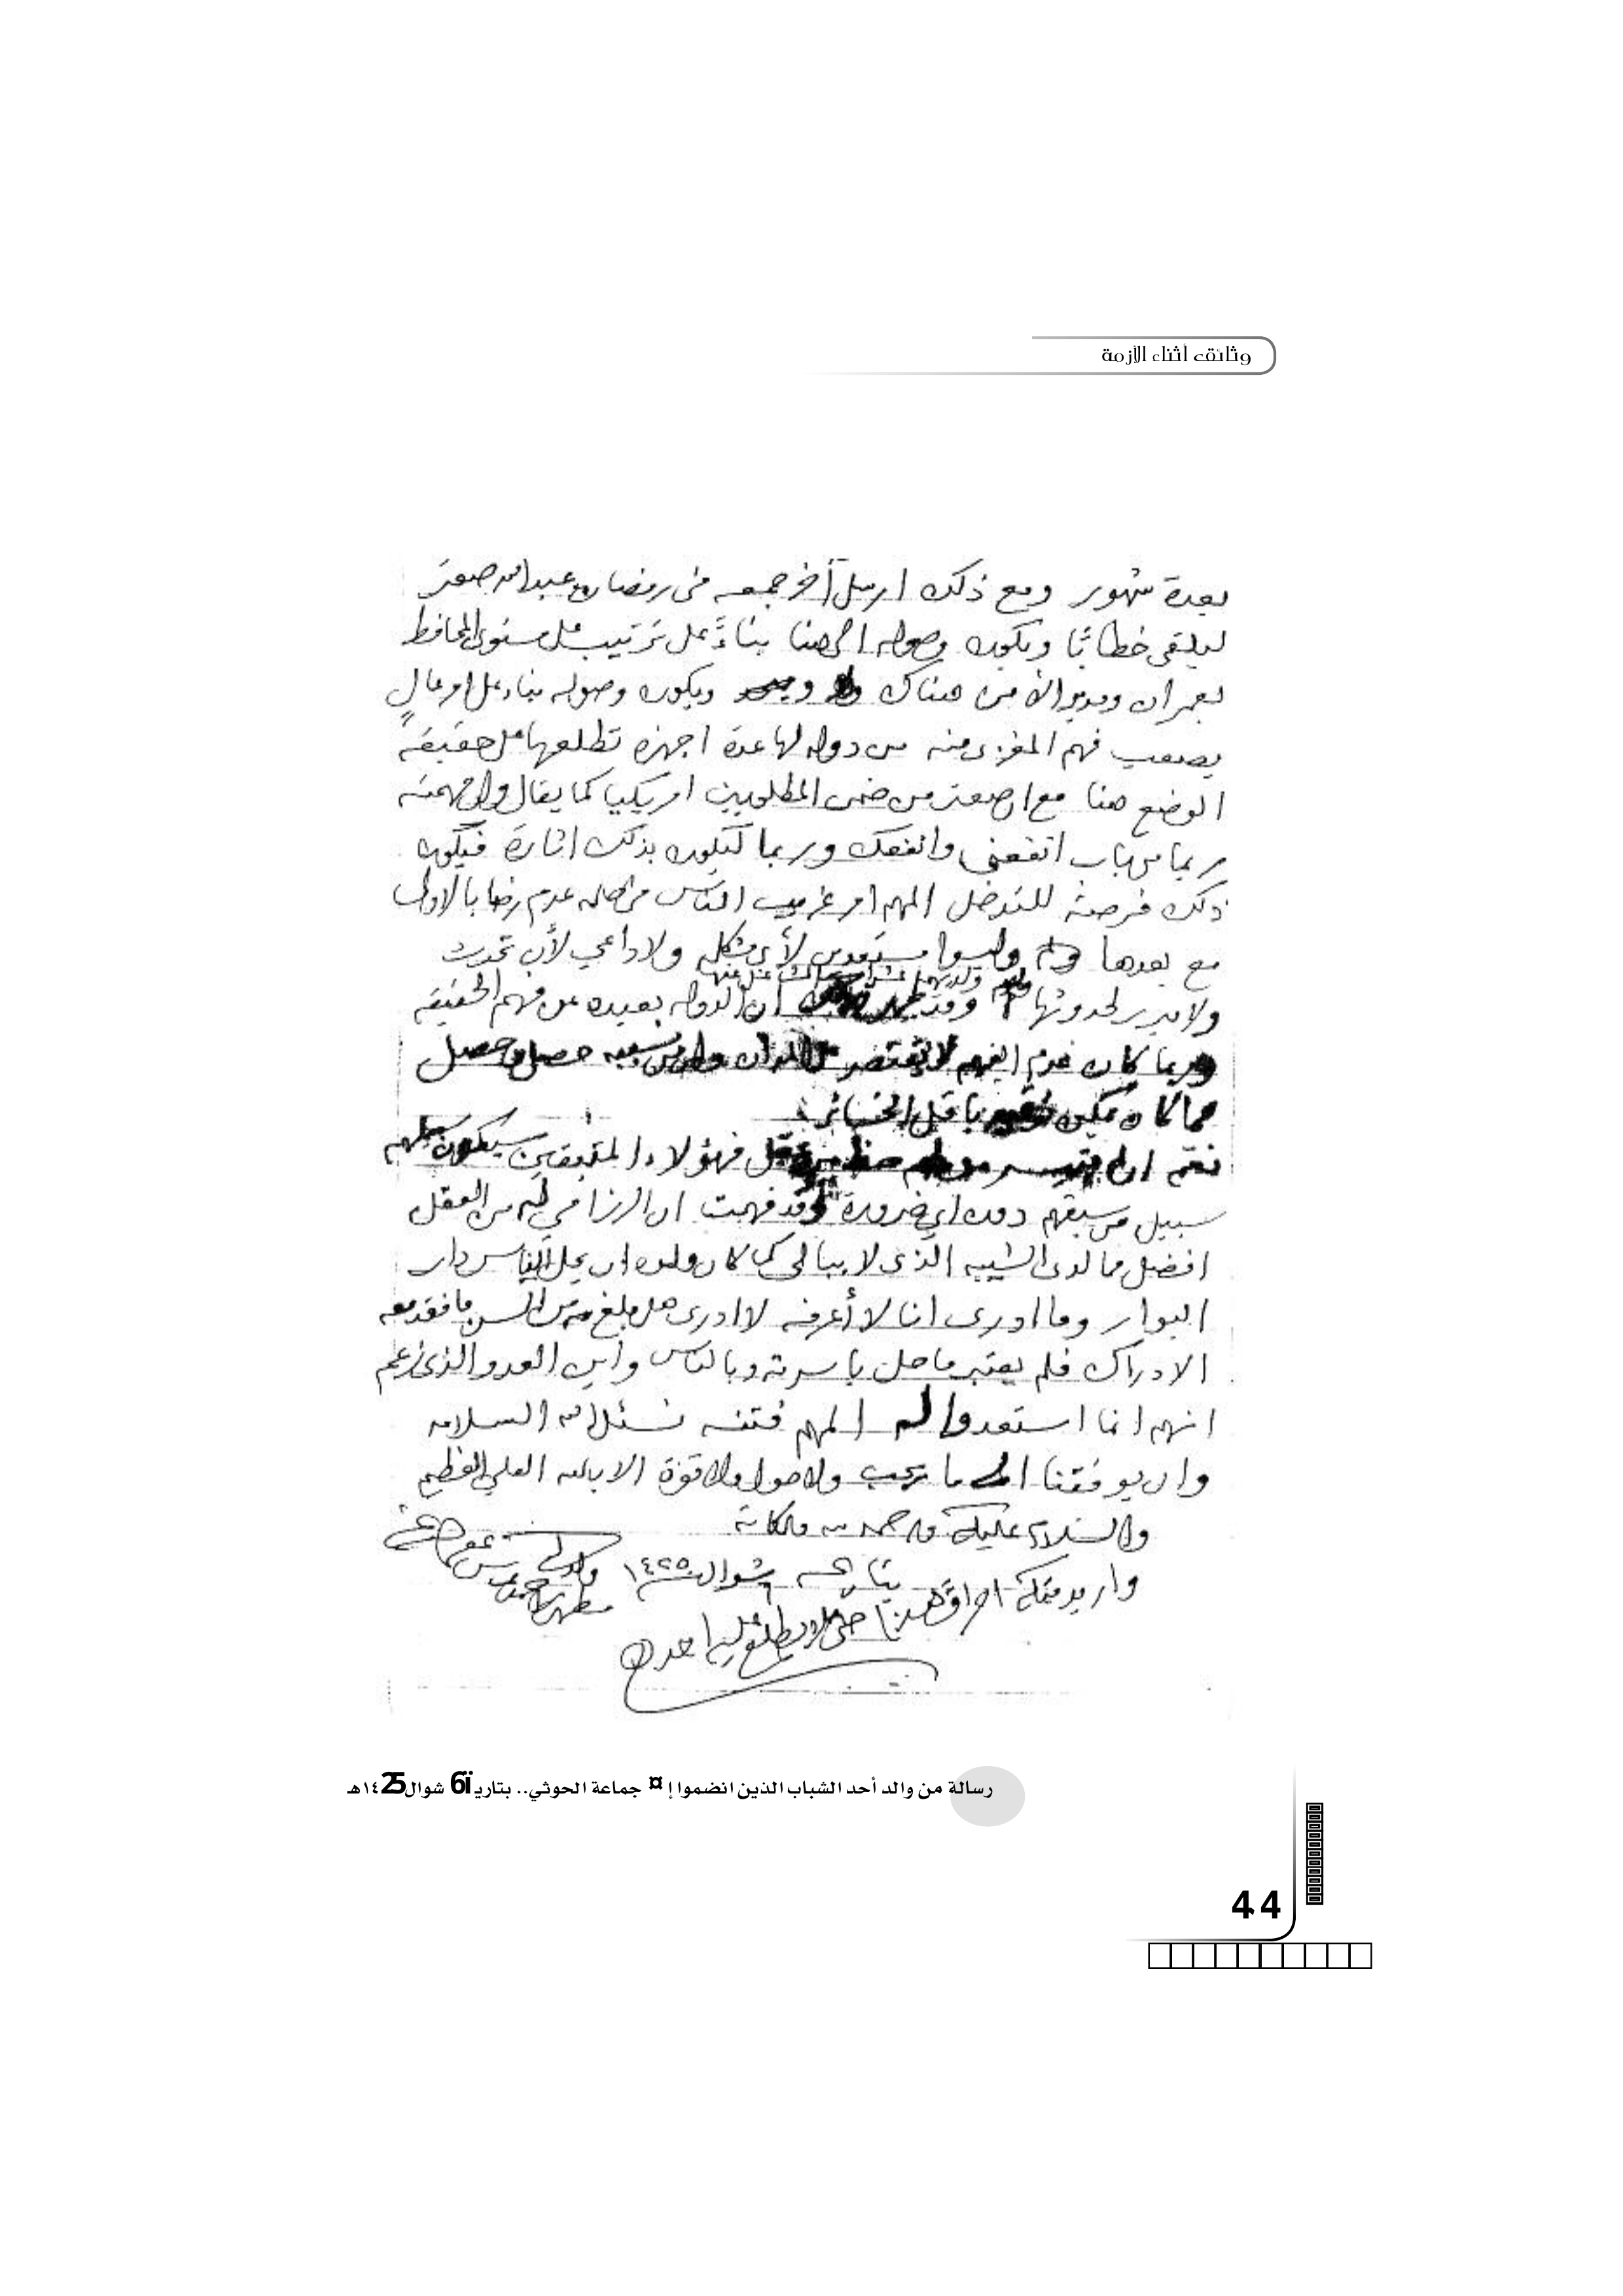 وثائق أثناء الأزمة
بعدة شهور ومع ذلك ارسل آخر جمعه في رمضان عبدالله صعتر
ليلقي خطابًا ويكون وصوله الى هنا بناءً على ترتيب على مستوى المحافظ
بعمران ومدير الأمن هناك ويكون وصوله بناء على امر عالٍ
يصعب فهم المغزى منه من دوله لها عدة اجهزه تطلعها على حقيقة
الوضع هنا مع ان صعتر من ضمن المطلوبين امريكيا كما يقال والى مهمته
ربما من باب انفعني وانفعك وربما لتكون بذلك اثارة فيكون
ذلك فرصة للتدخل المهم امر غريب الناس في حاله عدم رضا بالاولى
مع بعدها وليسوا مستعدين لأي مشكله ولا داعي لأن تحدث
ولا مبرر لحدوثها وقد ان الدوله بعيده عن فهم الحقيقه
وربما كان عدم الفهم لا يقتصر حصل ما حصل
مما كان يمكن باقل الخسائر
نعم ان فهؤلاء المتبقين سيكون سبيلهم
سبيل من سبقهم دون اي ضرورة وقد فهمت ان الرزامي له من العقل
افضل مما لدى الشيبه الذي لا يبالي كما كان ولده ان يحل الناس دار
البوار وما ادري انا لا أعرفه لا ادري هل بلغ من السن ما فقد معه
الادراك فلم يعتبر ما حل باسرته وبالناس وأين العدو الذي زعم
انهم انما استعدوا له المهم فتنه نسئل الله السلامه
وان يوفقنا الى ما يحب ولا حول ولا قوة الا بالله العلي العظيم
والسلام عليكم ورحمة الله وبركاته
بتاريخ شوال ١٤٢٥
واريد منكم احراق هذا حتى لا يطلع عليه احد
رسالة من والد أحد الشباب الذين انضموا إ¤ جماعة الحوثي.. بتاريï6 شوال ١٤25هـ
44